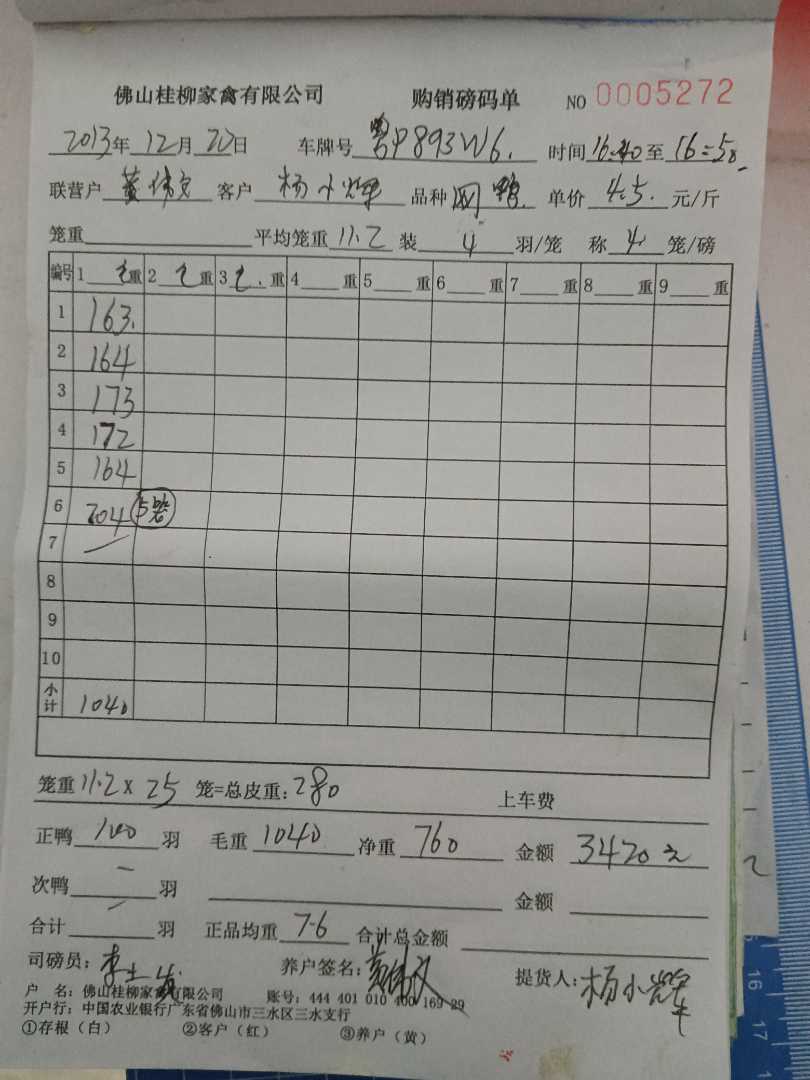 佛山桂柳家禽有限公司 购销磅码单 NO 0005272
2013年12月20日 车牌号 粤P893W6. 时间 16:40 至 16=50
联营户 黄伟文 客户 杨小辉 品种 网鸭 单价 4.5. 元/斤
笼重 平均笼重 11.2 装 4 羽/笼 称 4 笼/磅
编号 1 毛重 2 毛重 3 毛重 4 重 5 重 6 重 7 重 8 重 9 重
1 163.
2 164
3 173
4 172
5 164
6 204 5笼
7 —
8
9
10
小计 1040
笼重 11.2 x 25 笼=总皮重: 280 上车费
正鸭 100 羽 毛重 1040 净重 760 金额 3420元
次鸭 — 羽 金额
合计 — 羽 正品均重 7-6 合计总金额
司磅员: 养户签名: 黄伟文 提货人: 杨小辉
户 名: 佛山桂柳家禽有限公司 账号: 444 401 010 400 169 29
开户行: 中国农业银行广东省佛山市三水区三水支行
①存根（白） ②客户（红） ③养户（黄）